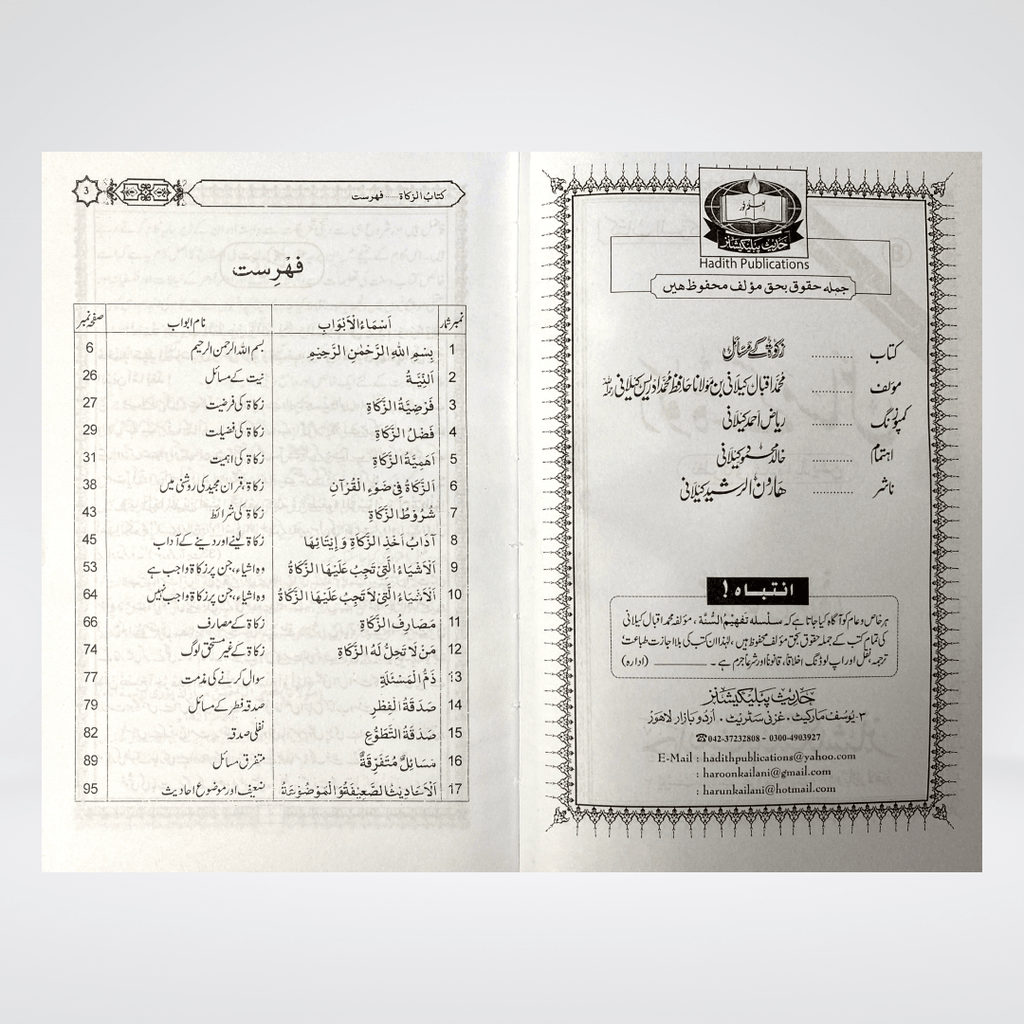 حدیث پبلیکیشنز
Hadith Publications
جملہ حقوق بحق مؤلف محفوظ ہیں
کتاب .......... زکوٰۃ کے مسائل
مؤلف .......... محمد اقبال کیلانی بن مولانا حافظ محمد ادریس کیلانی رحمہ اللہ
کمپوزنگ .......... ریاض احمد کیلانی
اہتمام .......... خالد محمود کیلانی
ناشر .......... ہارون الرشید کیلانی
انتباہ !
ہر خاص و عام کو آگاہ کیا جاتا ہے کہ سلسلہ تفہیم السنۃ، مؤلفہ محمد اقبال کیلانی
کی تمام کتب کے جملہ حقوق بحق مؤلف محفوظ ہیں، لہٰذا ان کتب کی بلا اجازت طباعت
ترجمہ، نقل اور اپ لوڈنگ اخلاقاً، قانوناً اور شرعاً جرم ہے۔ ــــــــــ (ادارہ)
حدیث پبلیکیشنز
۳-یوسف مارکیٹ، غزنی سٹریٹ، اردو بازار لاہور
☎042-37232808 - 0300-4903927
E-Mail : hadithpublications@yahoo.com
: haroonkailani@gmail.com
: harunkailani@hotmail.com
کتابُ الزکاۃ ..... فہرست 3
فہرِست
نمبر شمار اَسْمَاءُ الْاَبْوَابِ نام ابواب صفحہ نمبر
1 بِسْمِ اللّٰهِ الرَّحْمٰنِ الرَّحِيْمِ بسم اللہ الرحمن الرحیم 6
2 اَلنِّيَّةُ نیت کے مسائل 26
3 فَرْضِيَّةُ الزَّكَاةِ زکاۃ کی فرضیت 27
4 فَضْلُ الزَّكَاةِ زکاۃ کی فضیلت 29
5 اَهَمِيَّةُ الزَّكَاةِ زکاۃ کی اہمیت 31
6 اَلزَّكَاةُ فِيْ ضَوْءِ الْقُرْآنِ زکاۃ، قرآن مجید کی روشنی میں 38
7 شُرُوْطُ الزَّكَاةِ زکاۃ کی شرائط 43
8 آدَابُ اَخْذِ الزَّكَاةِ وَ اِيْتَائِهَا زکاۃ لینے اور دینے کے آداب 45
9 اَلْاَشْيَاءُ الَّتِيْ تَجِبُ عَلَيْهَا الزَّكَاةُ وہ اشیاء، جن پر زکاۃ واجب ہے 53
10 اَلْاَشْيَاءُ الَّتِيْ لَا تَجِبُ عَلَيْهَا الزَّكَاةُ وہ اشیاء، جن پر زکاۃ واجب نہیں 64
11 مَصَارِفُ الزَّكَاةِ زکاۃ کے مصارف 66
12 مَنْ لَا تَحِلُّ لَهُ الزَّكَاةُ زکاۃ کے غیر مستحق لوگ 74
13 ذَمُّ الْمَسْئَلَةِ سوال کرنے کی مذمت 77
14 صَدَقَةُ الْفِطْرِ صدقہ فطر کے مسائل 79
15 صَدَقَةُ التَّطَوُّعِ نفلی صدقہ 82
16 مَسَائِلُ مُتَفَرِّقَةٌ متفرق مسائل 89
17 اَلْاَحَادِيْثُ الضَّعِيْفَةُ وَ الْمَوْضُوْعَةُ ضعیف اور موضوع احادیث 95